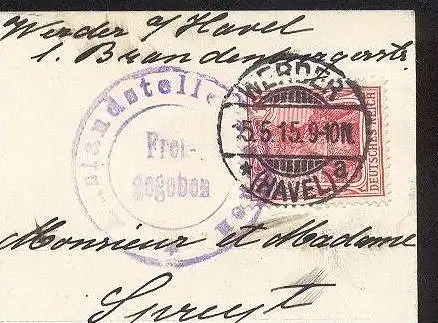 Werder a/Havel
1. Brandenburgerstr.
Auslandstelle
Frei-
gegeben
WERDER
15.5.15.9-10N.
* (HAVEL) a
DEUTSCHES REICH
Monsieur et Madame
Spreyt